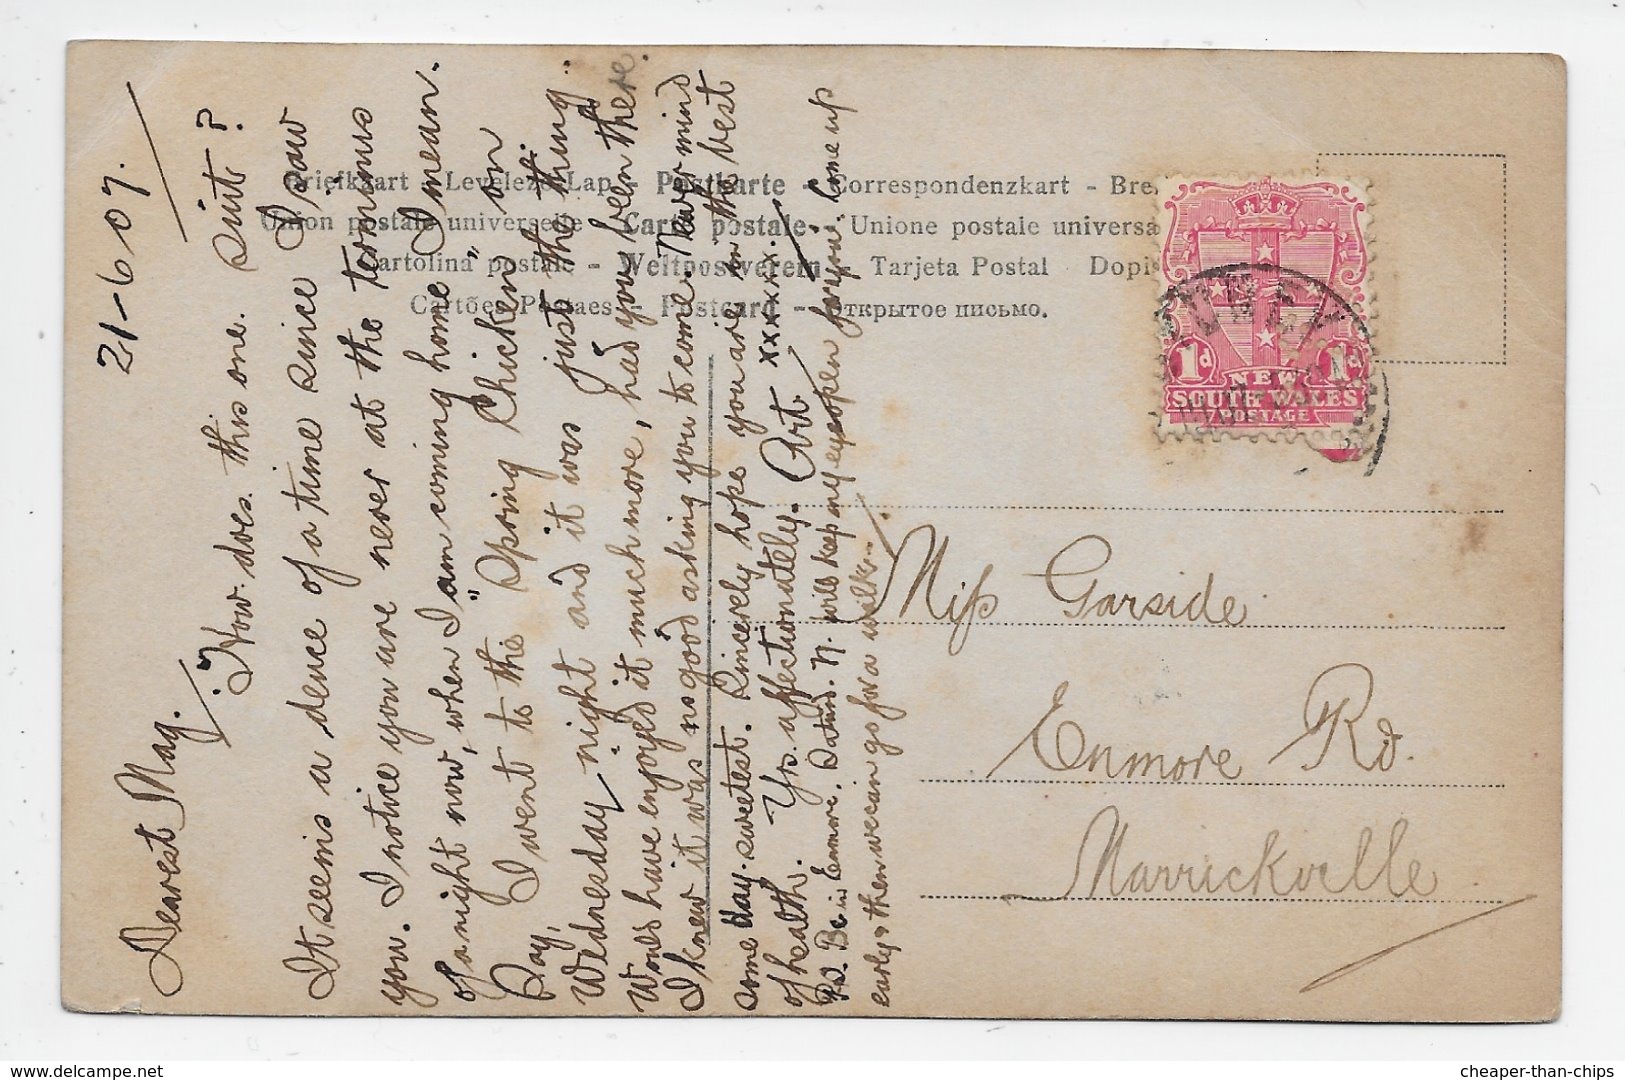 21-6-07.
Dearest Mag.
How does this one. suit?
It seems a dence of a time since I saw
you. I notice you are never at the terminus
of a night now, when I am coming home I mean.
I went to the "Spring Chicken" on
Say,
Wednesday night and it was just the thing.
Would have enjoyed it much more, had you been there.
I knew it was no good asking you to come. Never mind
some day. sweetest. Sincerely hope you are in the best
of health. Yrs. affectionately. Art. xxxxxx.
P.S. Be in Enmore. Saturd. N. will keep my eyes open for you. Come up
early & then we can go for a walk.
Briefkaart - Levelező-Lap - Postkarte - Correspondenzkart - Bre
Union postale universelle Carte postale - Unione postale universa
Cartolina postale - Weltpostverein - Tarjeta Postal Dopi
Cartões Postaes - Postcard - Открытое письмо.
1d 1d
NEW
SOUTH WALES
POSTAGE
Miss Garside
Enmore Rd.
Marrickville
delcampe.net
cheaper-than-chips